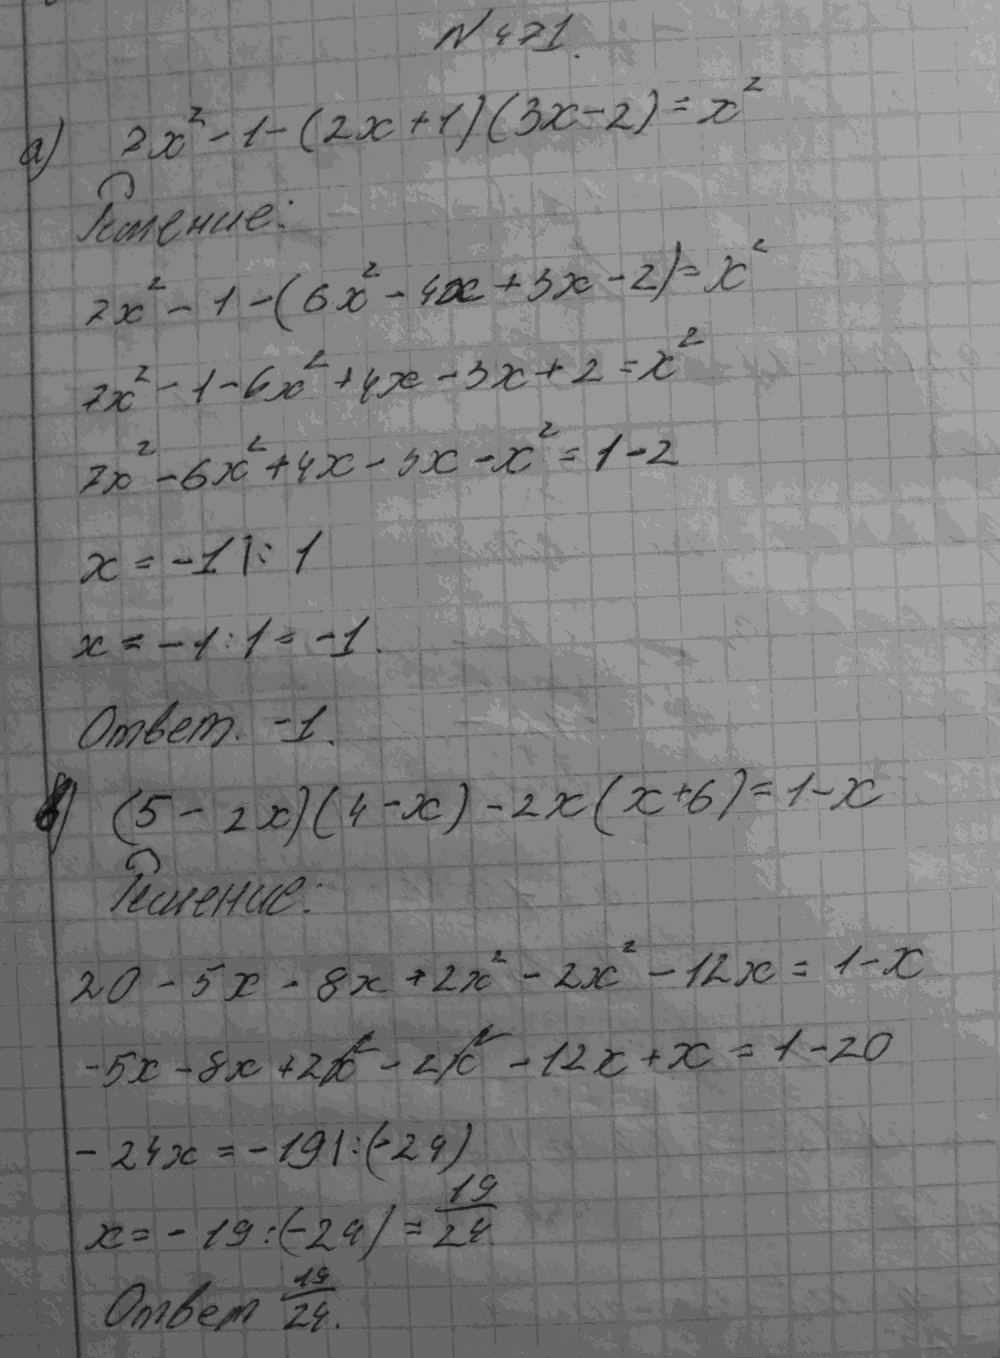 № 471.
а) 7x² - 1 - (2x + 1)(3x - 2) = x²
Решение:
7x² - 1 - (6x² - 4x + 3x - 2) = x²
7x² - 1 - 6x² + 4x - 3x + 2 = x²
7x² - 6x² + 4x - 3x - x² = 1 - 2
x = -1 |: 1
x = -1 : 1 = -1.
Ответ. -1.
в) (5 - 2x)(4 - x) - 2x(x + 6) = 1 - x
Решение:
20 - 5x - 8x + 2x² - 2x² - 12x = 1 - x
-5x - 8x + 2x² - 2x² - 12x + x = 1 - 20
- 24x = -19 |: (-24)
x = - 19 : (-24) = 19/24
Ответ 19/24.